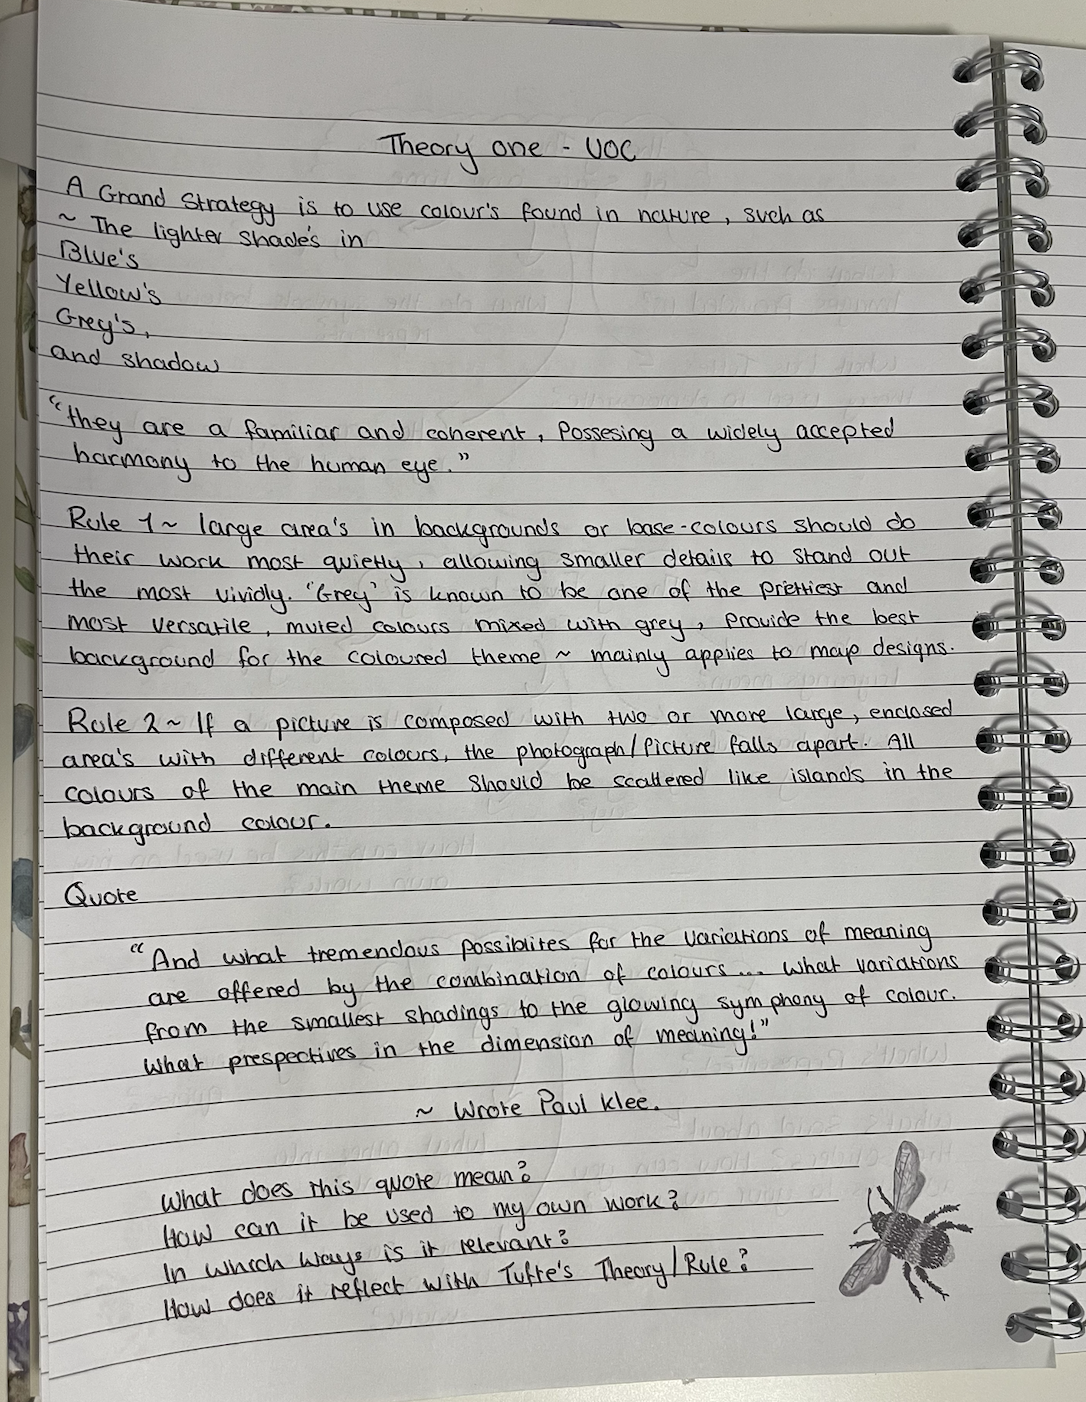 Theory one - UOC
A Grand Strategy is to use colour's found in nature, such as
~ The lighter shade's in
Blue's
Yellow's
Grey's,
and shadow
"they are a familiar and coherent, Possesing a widely accepted
harmony to the human eye."
Rule 1 ~ large area's in backgrounds or base-colours should do
their work most quietly, allowing smaller details to stand out
the most vividly. "Grey" is known to be one of the prettiest and
most versatile, muted colours mixed with grey, Provide the best
background for the coloured theme ~ mainly applies to map designs.
Rule 2 ~ If a picture is composed with two or more large, enclosed
area's with different colours, the photograph/Picture falls apart. All
colours of the main theme should be scattered like islands in the
background colour.
Quote
"And what tremendous possiblites for the variations of meaning
are offered by the combination of colours... what variations
from the smallest shadings to the glowing symphony of colour.
What prespectives in the dimension of meaning!"
~ Wrote Paul Klee.
What does this quote mean?
How can it be used to my own work?
In which ways is it relevant?
How does it reflect with Tufte's Theory/Rule?